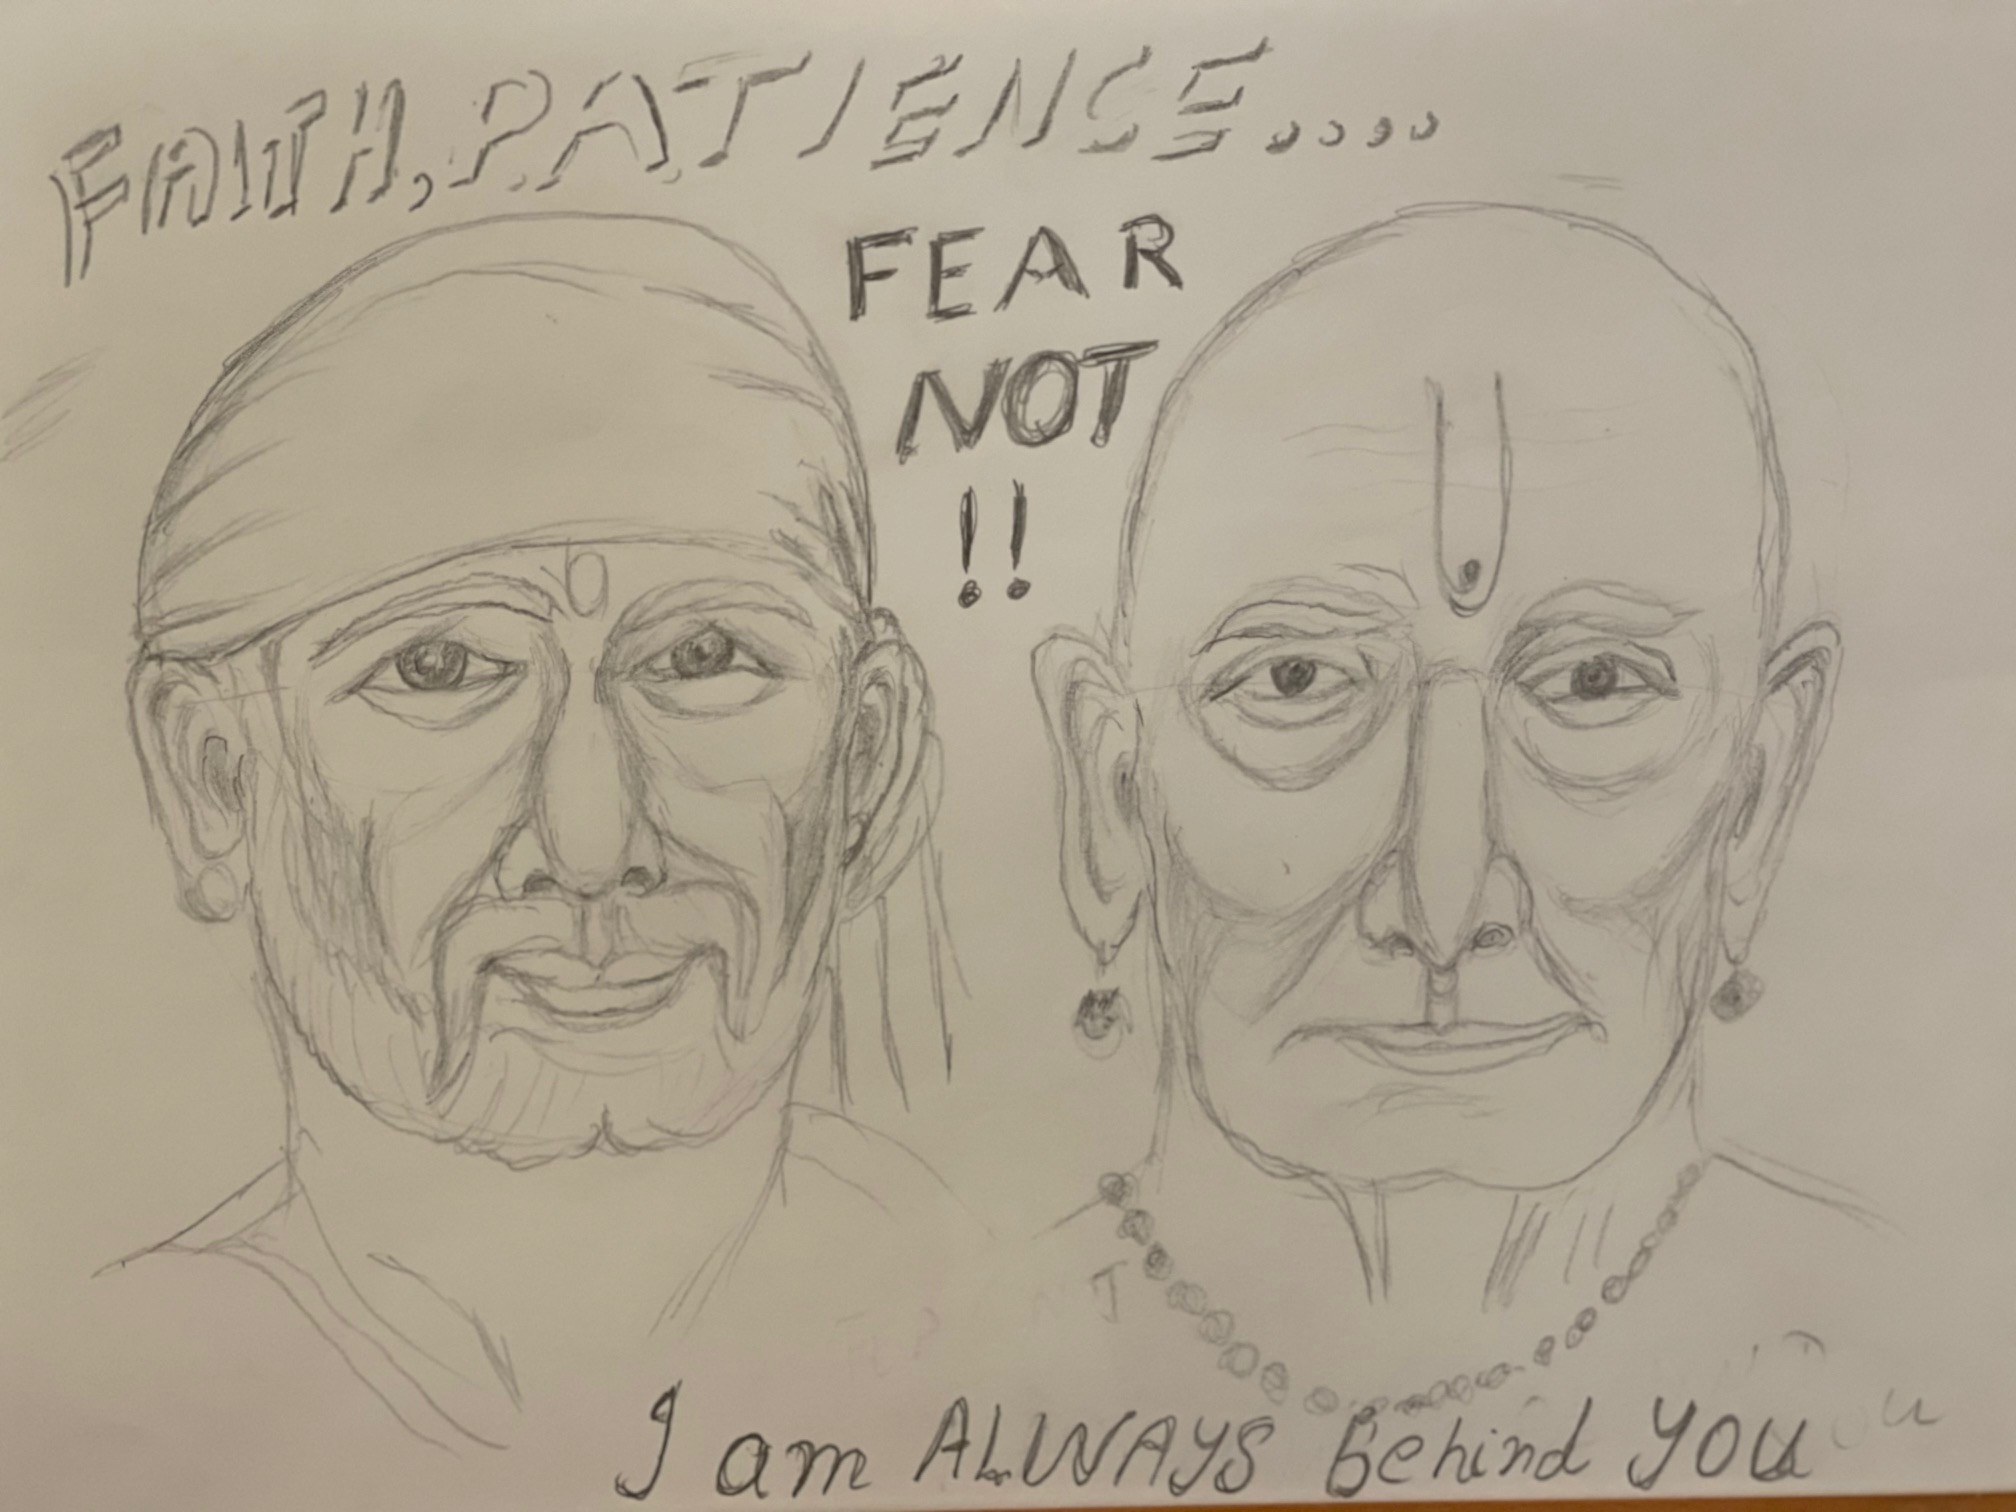 FAITH, PATIENCE....
FEAR
NOT
!!
I am ALWAYS Behind YOU